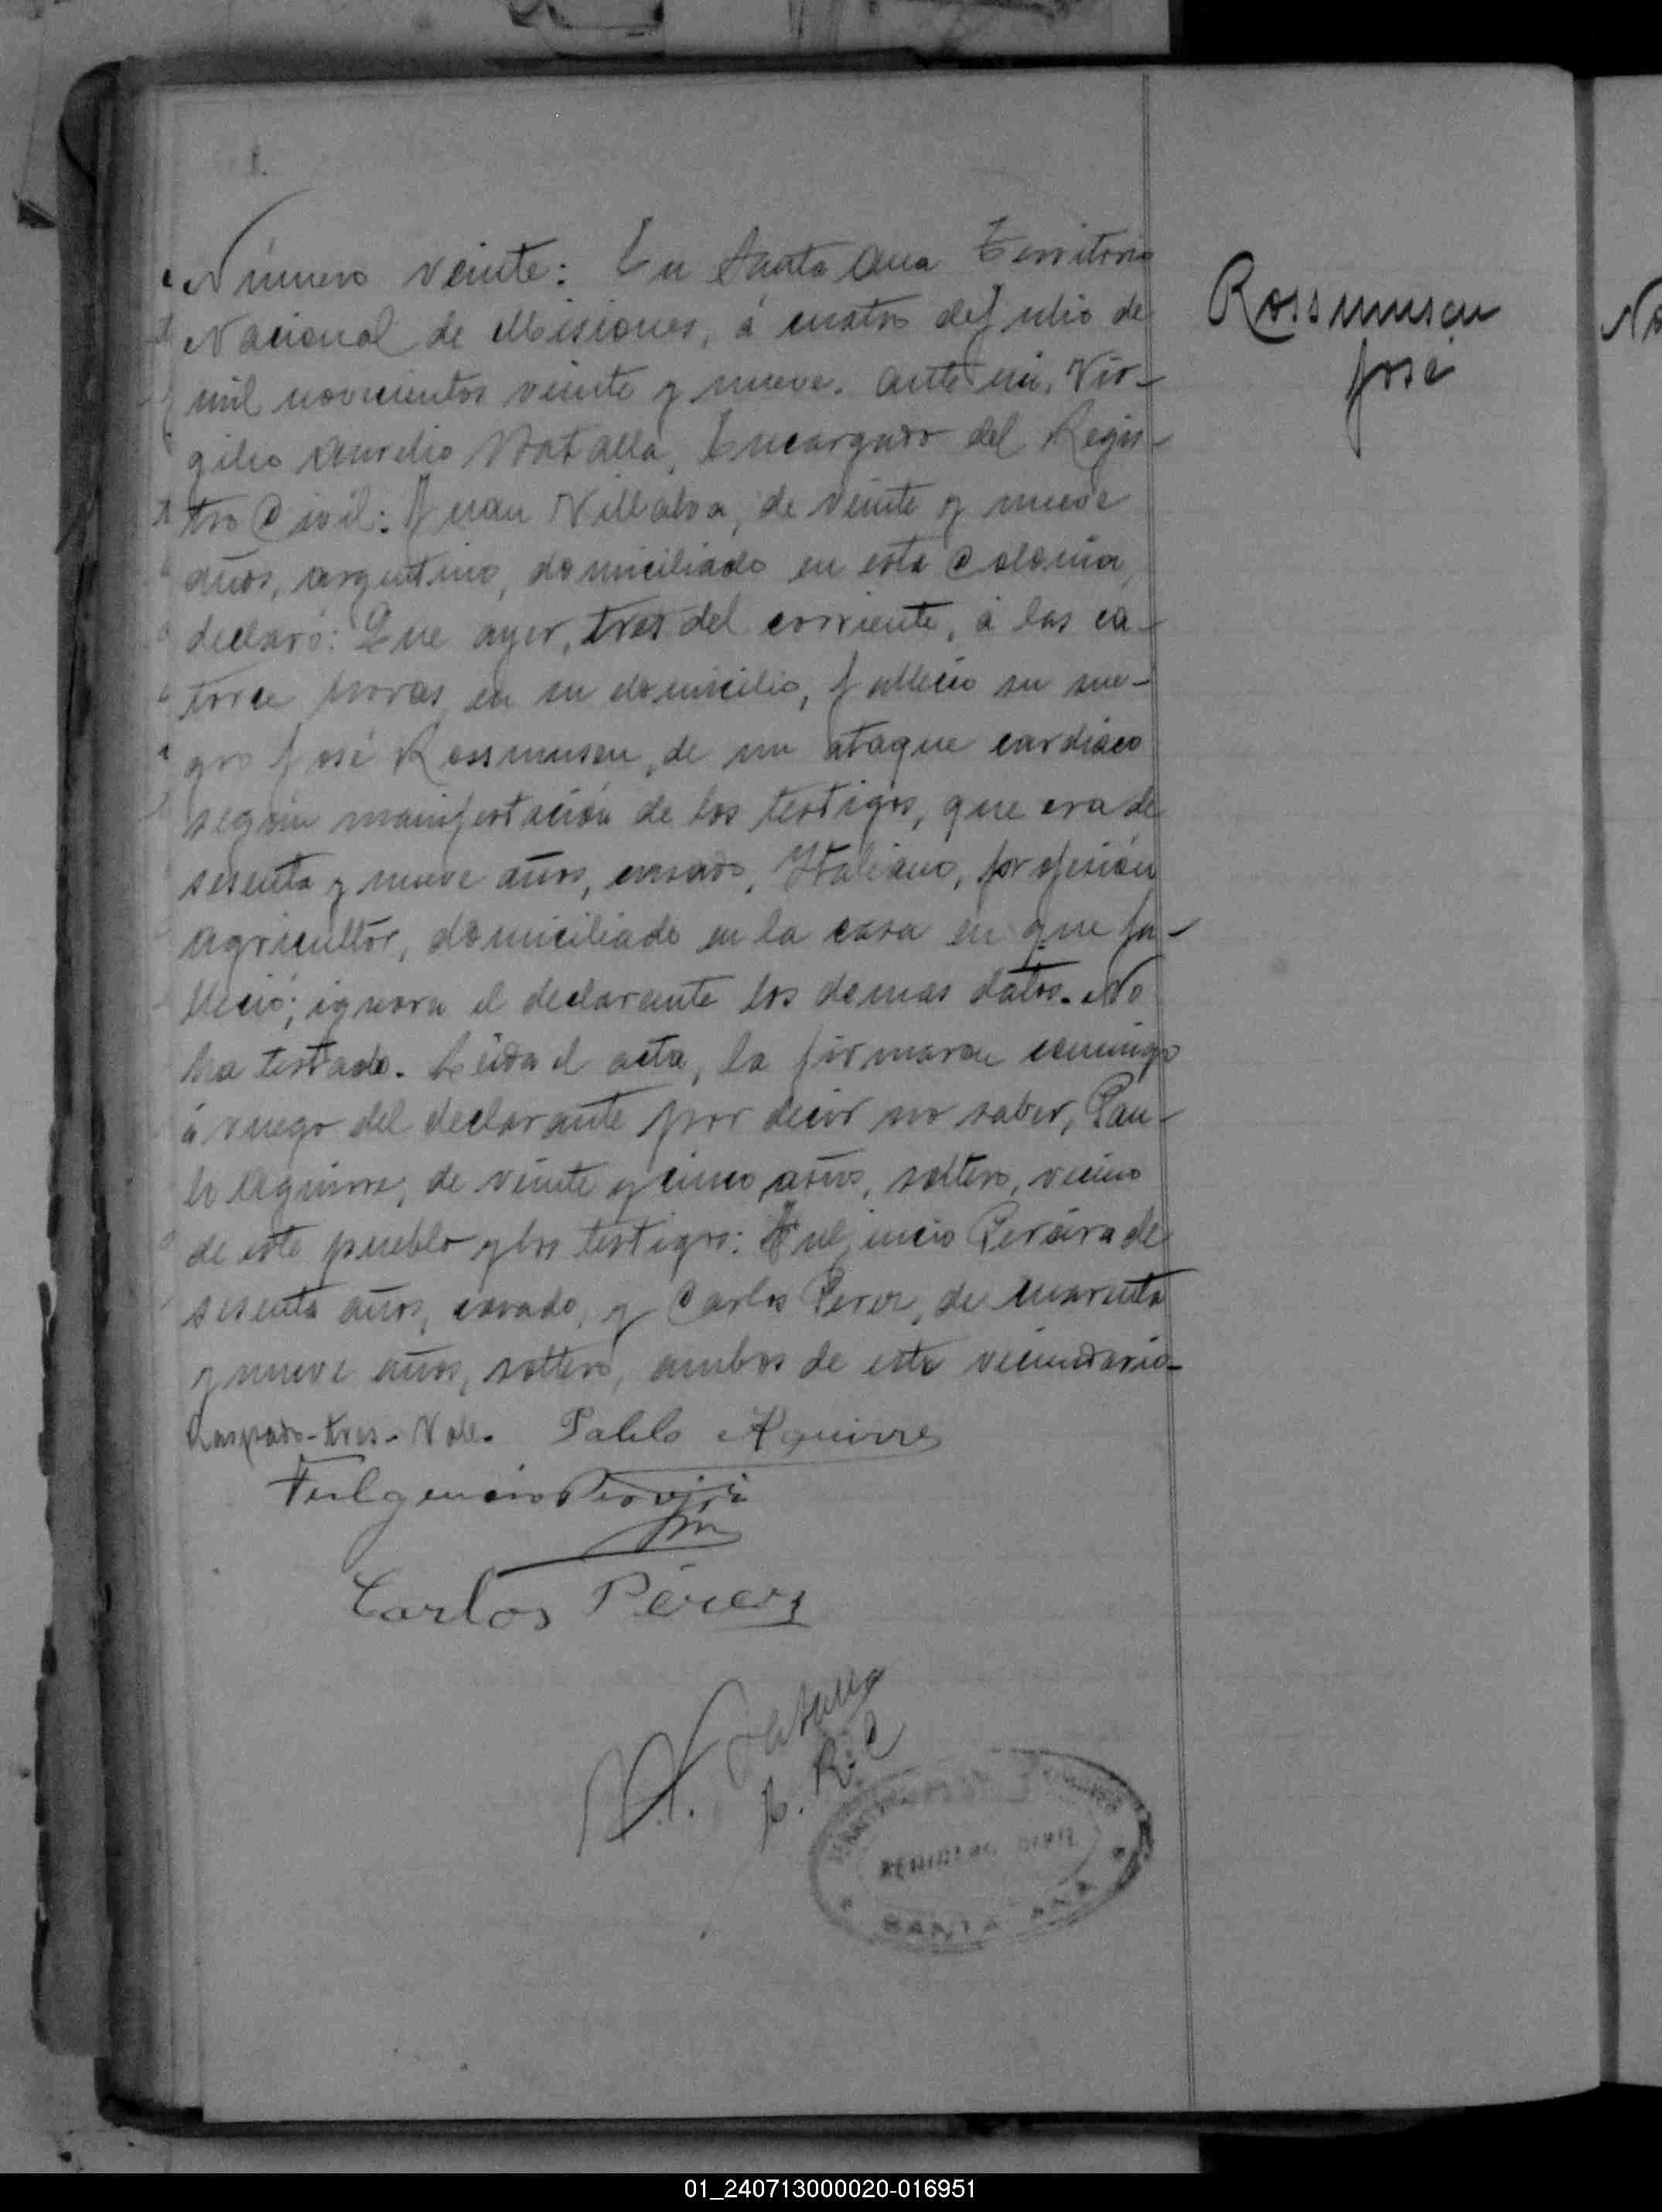 Número veinte: En Santa Ana Territorio
Nacional de Misiones, á cuatro de Julio de
mil novecientos veinte y nueve. Ante mi, Vir-
gilio Aurelio Batalla, Encargado del Regis-
tro Civil: Juan Villalva, de veinte y nueve
años, argentino, domiciliado en esta Colonia,
declaró: Que ayer, tres del corriente, á las ca-
torce horas, en su domicilio, falleció su sue-
gro José Rossmusen, de un ataque cardiaco
según manifestación de los testigos, que era de
sesenta y nueve años, casado, Italiano, profesión
agricultor, domiciliado en la casa en que fa-
lleció; ignora el declarante los demas datos. No
ha testado. Leida el acta, la firmaron conmigo
á ruego del declarante por decir no saber, Pau-
lo Aguirre, de veinte y cinco años, soltero, vecino
de este pueblo y los testigos: Fuljencio Pereira de
sesenta años, casado, y Carlos Perez, de cuarenta
y nueve años, soltero, ambos de este vecindario-
Raspado-tres-Vale. Pablo Aguirre
Fulgencio
Carlos Pérez
Batalla
E. R. C
REGISTRO CIVIL
SANTA ANA
Rossmusen
José
No
01_240713000020-016951